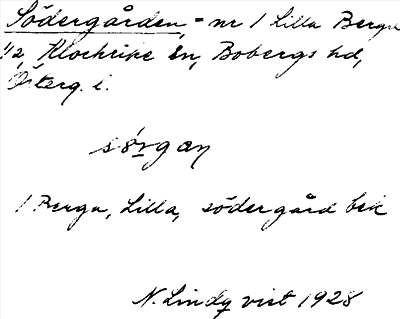 Södergården, = nr 1 Lilla Berga
1/2, Klockrike sn, Bobergs hd,
Österg. l.
sørgan
1 Berga, Lilla, södergård bek
N. Lindq vist 1928